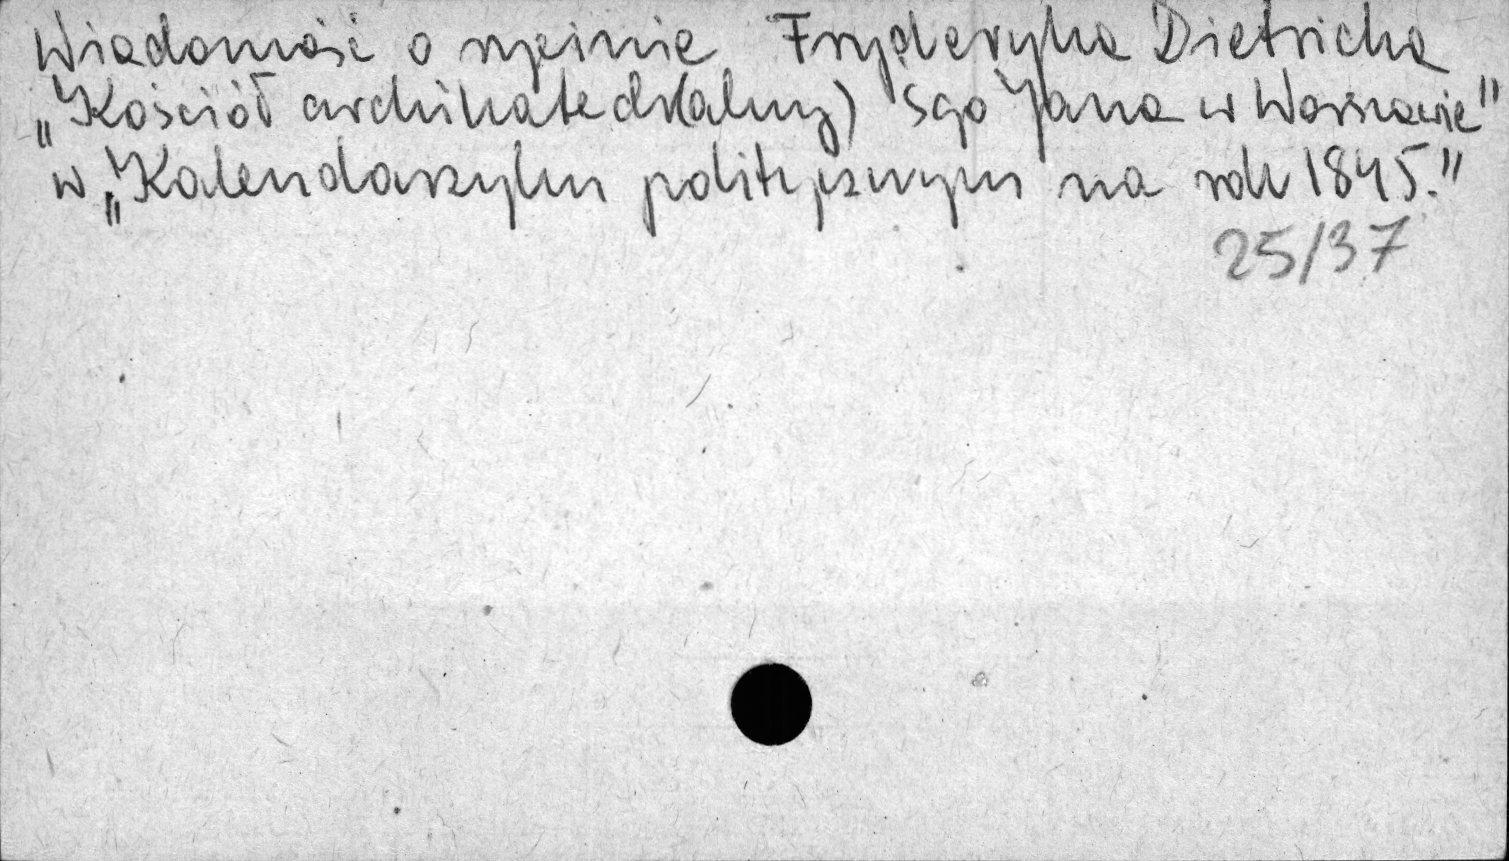 Wiadomość o rycinie Fryderyka Dietricha
„Kościół archikatedr(alny) Sgo Jana w Warszawie"
w „Kalendarzyku politycznym na rok 1845."
25/37